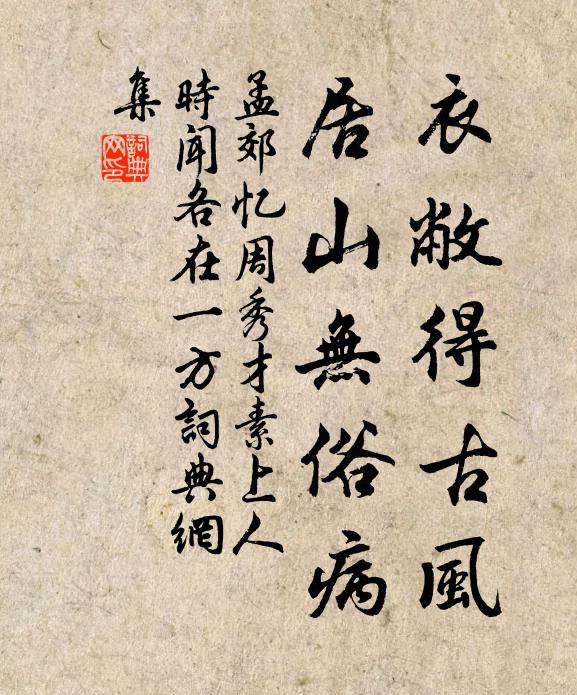 衣敝得古風
居山無俗病
孟郊忆周秀才素上人
時闻各在一方詞典網
集
詞典网印